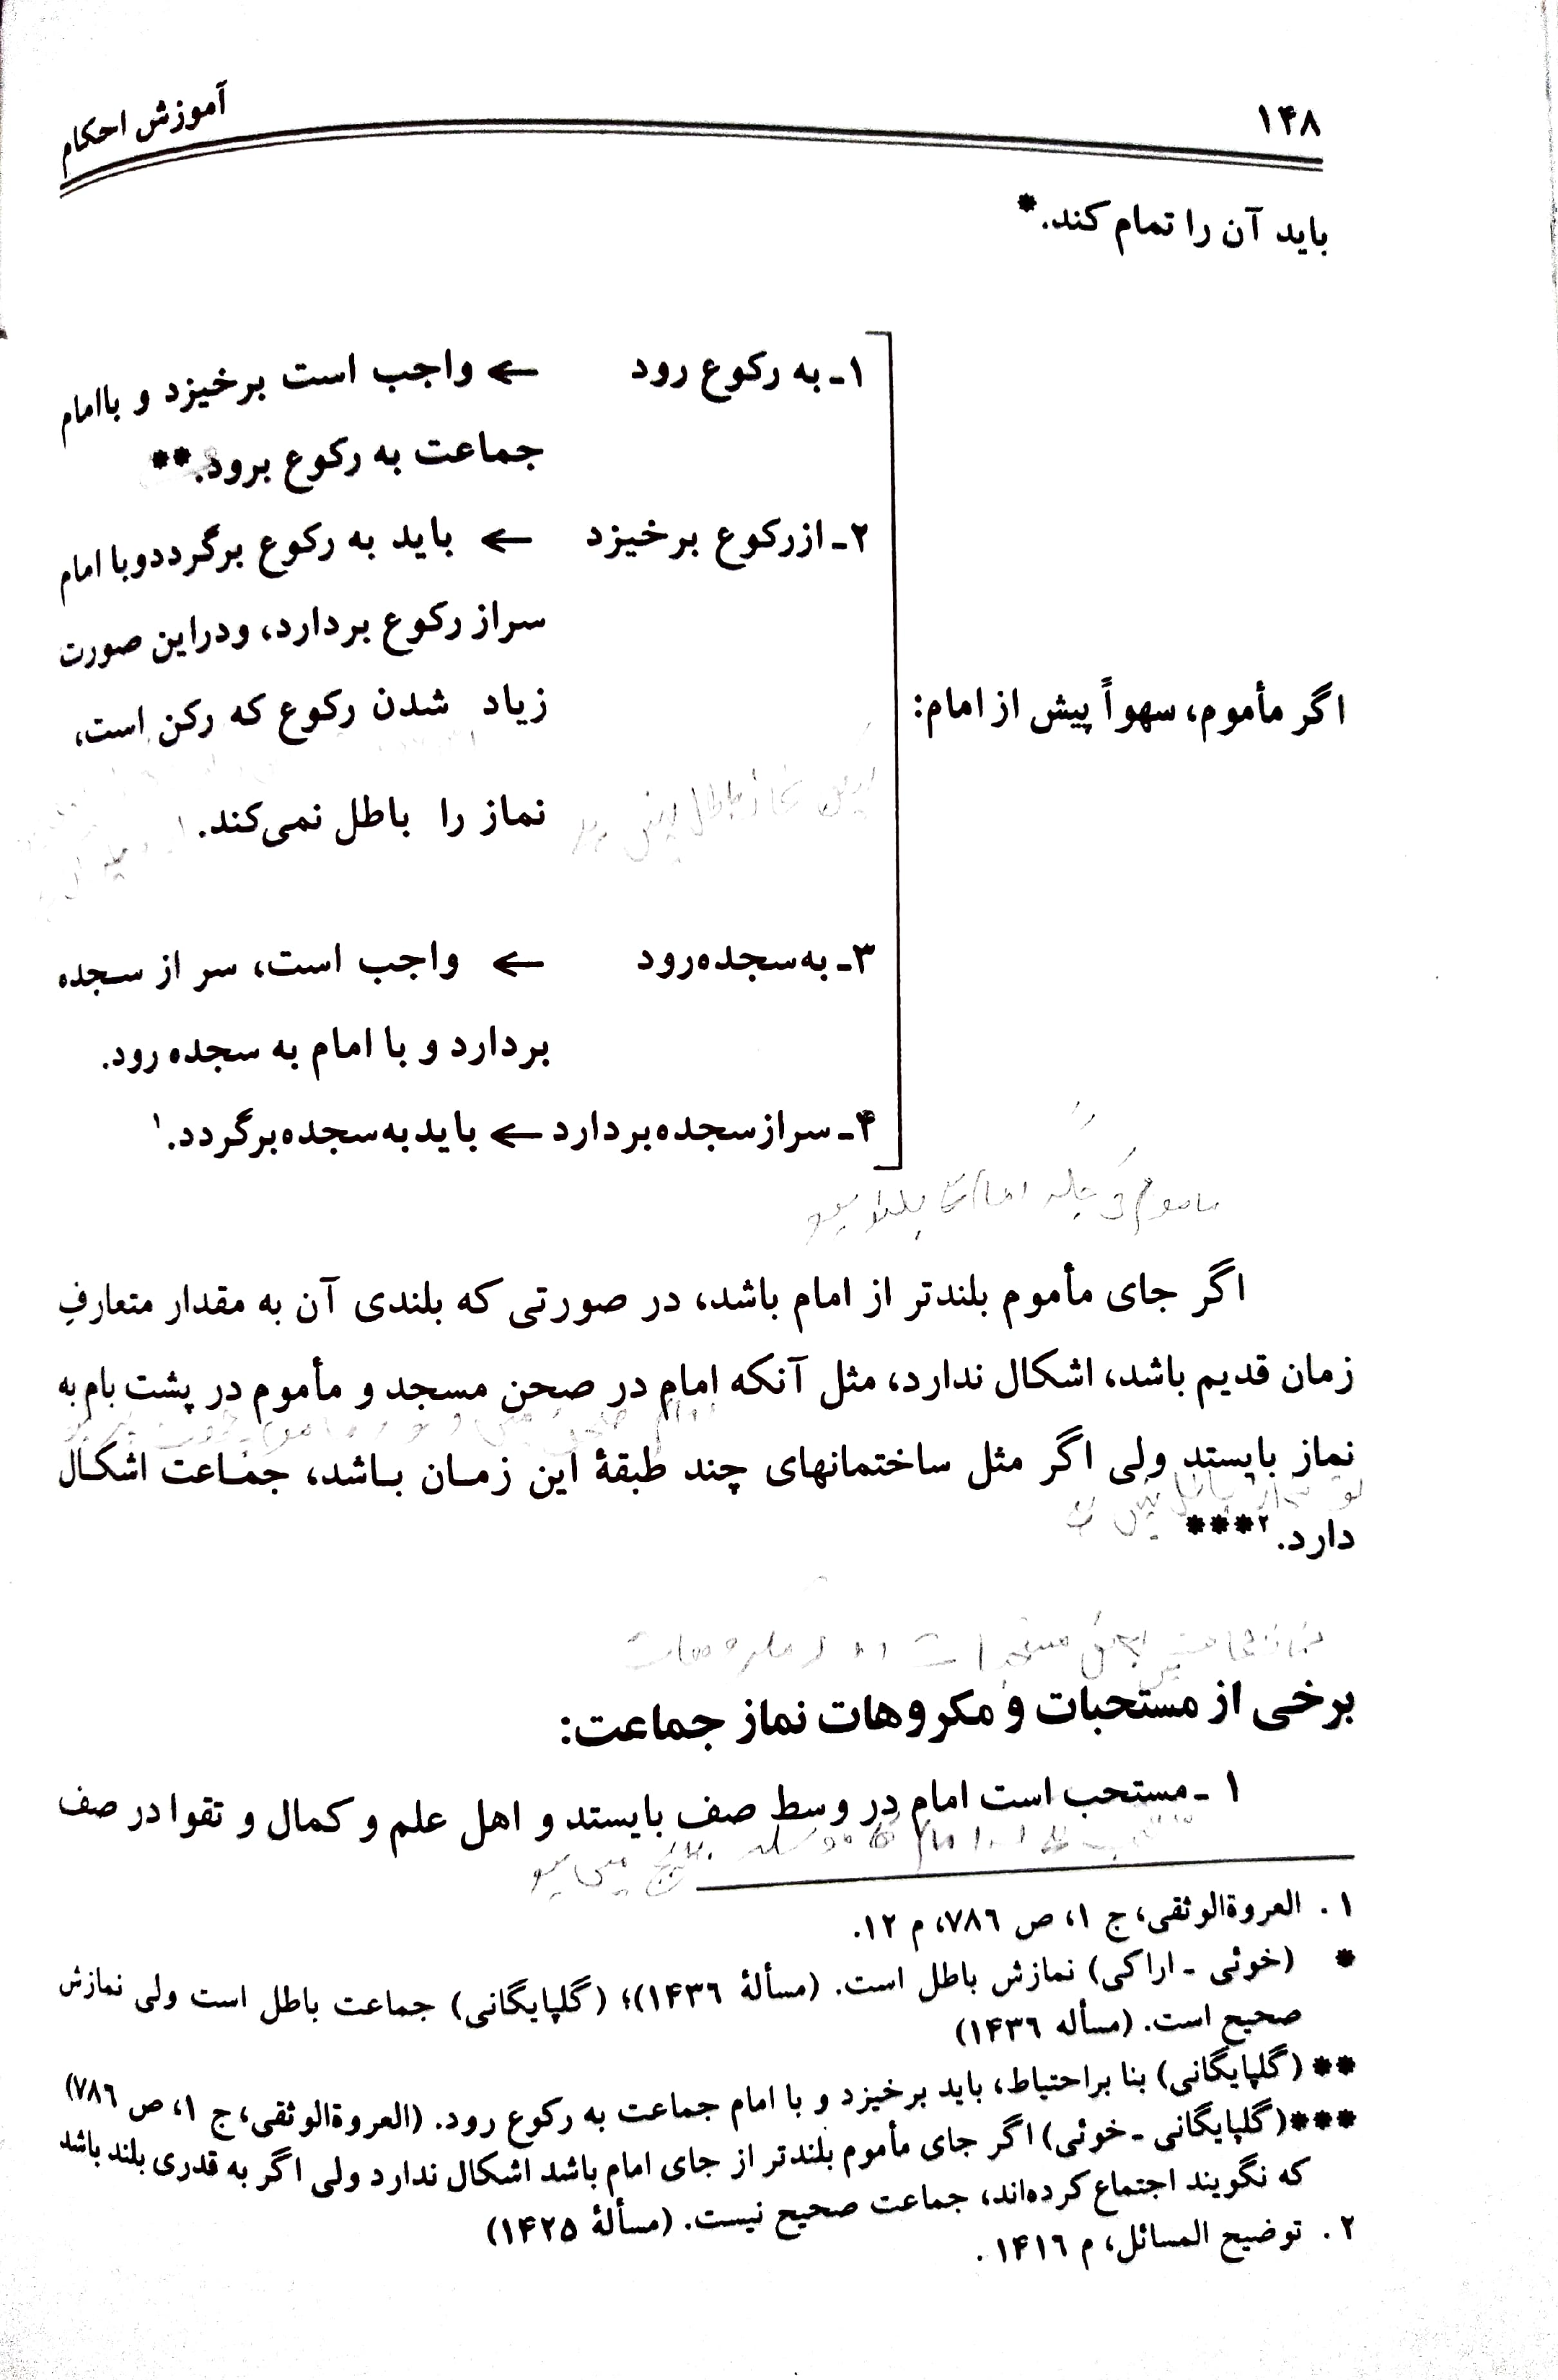 ۱۴۸
آموزش احکام
باید آن را تمام کند.*
اگر مأموم، سهواً پیش از امام:
۱ـ به رکوع رود ← واجب است برخیزد و باامام
جماعت به رکوع برود.**
۲ـ ازرکوع برخیزد ← باید به رکوع برگرددوبا امام
سراز رکوع بردارد، ودراین صورت
زیاد شدن رکوع که رکن است،
نماز را باطل نمی‌کند.
۳ـ به‌سجده‌رود ← واجب است، سر از سجده
بردارد و با امام به سجده رود.
۴ـ سرازسجده‌بردارد ← بایدبه‌سجده‌برگردد.۱
اگر جای مأموم بلندتر از امام باشد، در صورتی که بلندی آن به مقدار متعارفِ
زمان قدیم باشد، اشکال ندارد، مثل آنکه امام در صحن مسجد و مأموم در پشت بام به
نماز بایستد ولی اگر مثل ساختمانهای چند طبقهٔ این زمـان بـاشد، جمـاعت اشکـال
دارد.۲***
برخی از مستحبات و مکروهات نماز جماعت:
۱ ـ مستحب است امام در وسط صف بایستد و اهل علم و کمال و تقوا در صف
۱ . العروةالوثقی، ج ۱، ص ۷۸٦، م ۱۲.
* (خوئی ـ اراکی) نمازش باطل است. (مسألهٔ ۱۴۳٦)؛ (گلپایگانی) جماعت باطل است ولی نمازش
صحیح است. (مسأله ۱۴۳٦)
** (گلپایگانی) بنا براحتیاط، باید برخیزد و با امام جماعت به رکوع رود. (العروةالوثقی، ج ۱، ص ۷۸٦)
***(گلپایگانی ـ خوئی) اگر جای مأموم بلندتر از جای امام باشد اشکال ندارد ولی اگر به قدری بلند باشد
که نگویند اجتماع کرده‌اند، جماعت صحیح نیست. (مسألهٔ ۱۴۲۵)
۲ . توضیح المسائل، م ۱۴۱٦ .